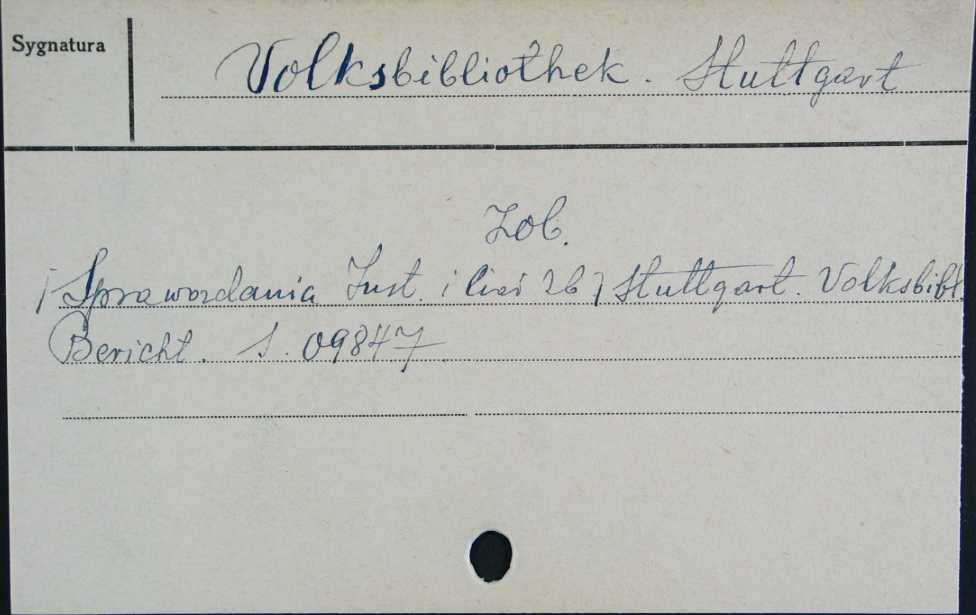 Sygnatura
Volksbibliothek. Stuttgart
Zob.
Sprawozdania Inst. i Stuttgart. Volksbibl.
Bericht. S. 09847